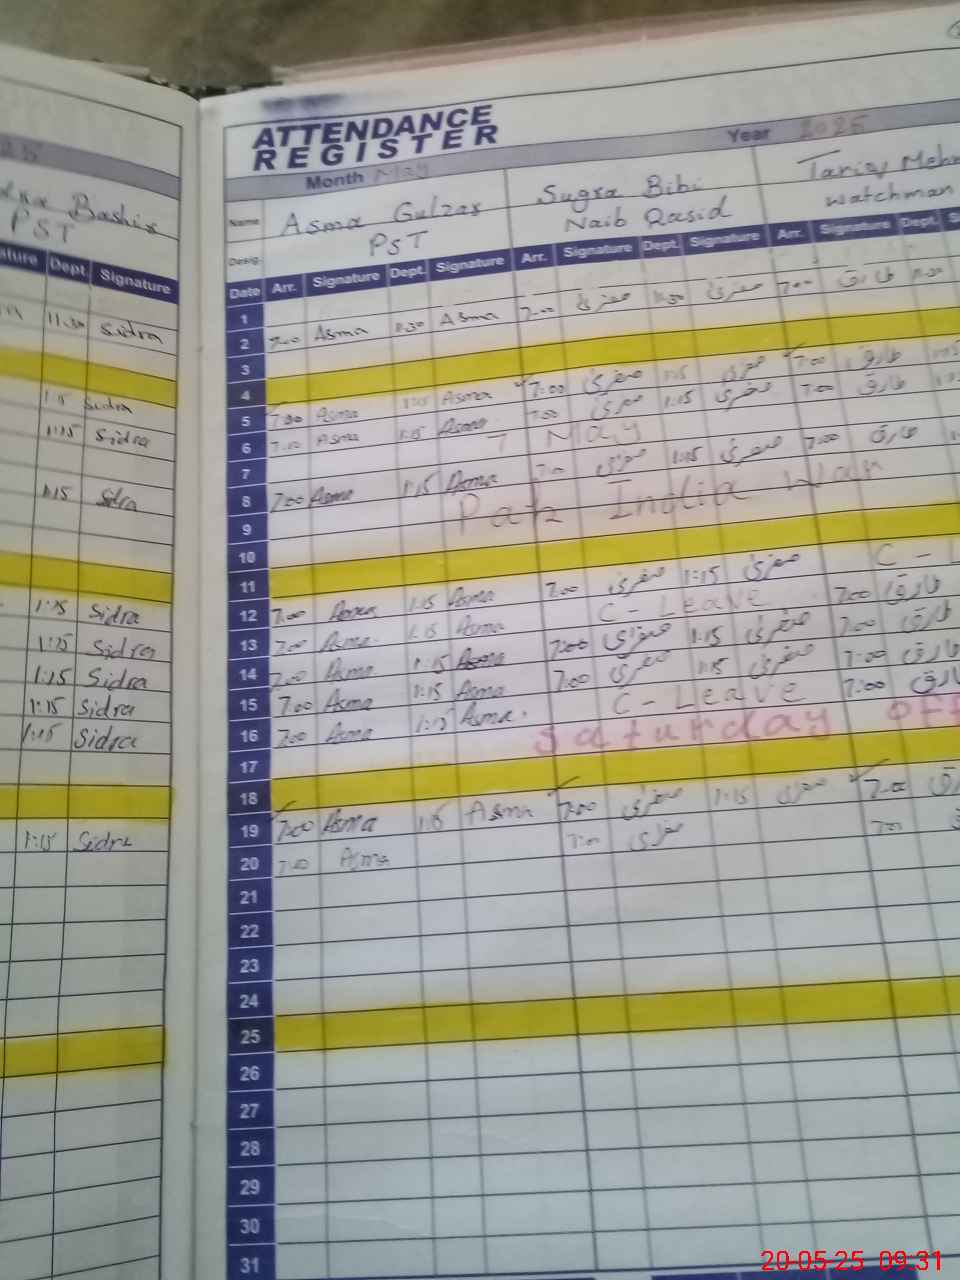 Bashir
PST
Dept. Signature
11:30 Sidra
1:15 Sidra
1:15 Sidra
1:15 Sidra
1:15 Sidra
1:15 Sidra
1:15 Sidra
1:15 Sidra
1:15 Sidra
1:15 Sidra
ATTENDANCE
REGISTER
Month May Year 2025
Name Asma Gulzar Sugra Bibi Tariq
Desig. PST Naib Qasid Watchman
Date Arr. Signature Dept. Signature Arr. Signature Dept. Signature Arr. Signature Dept.
1
2 7:00 Asma 11:30 Asma 7:00 صغریٰ 11:30 صغریٰ 7:00 طارق 11:30
3
4
5 7:00 Asma 1:15 Asma 7:00 صغریٰ 1:15 صغریٰ 7:00 طارق
6 7:00 Asma 1:15 Asma 7:00 صغریٰ 1:15 صغریٰ 7:00 طارق
7 7 May
8 7:00 Asma 1:15 Asma 7:00 صغریٰ 1:15 صغریٰ 7:00 طارق
9 Pak India War
10
11
12 7:00 Asma 1:15 Asma 7:00 صغریٰ 1:15 صغریٰ C - L
13 7:00 Asma 1:15 Asma C - Leave 7:00 طارق
14 7:00 Asma 1:15 Asma 7:00 صغریٰ 1:15 صغریٰ 7:00 طارق
15 7:00 Asma 1:15 Asma 7:00 صغریٰ 1:15 صغریٰ 7:00 طارق
16 7:00 Asma 1:15 Asma C - Leave 7:00 طارق
17 Saturday off
18
19 7:00 Asma 1:15 Asma 7:00 صغریٰ 1:15 صغریٰ 7:00
20 7:00 Asma 7:00 صغریٰ 7:00
21
22
23
24
25
26
27
28
29
30
31
20-05-25 09:31